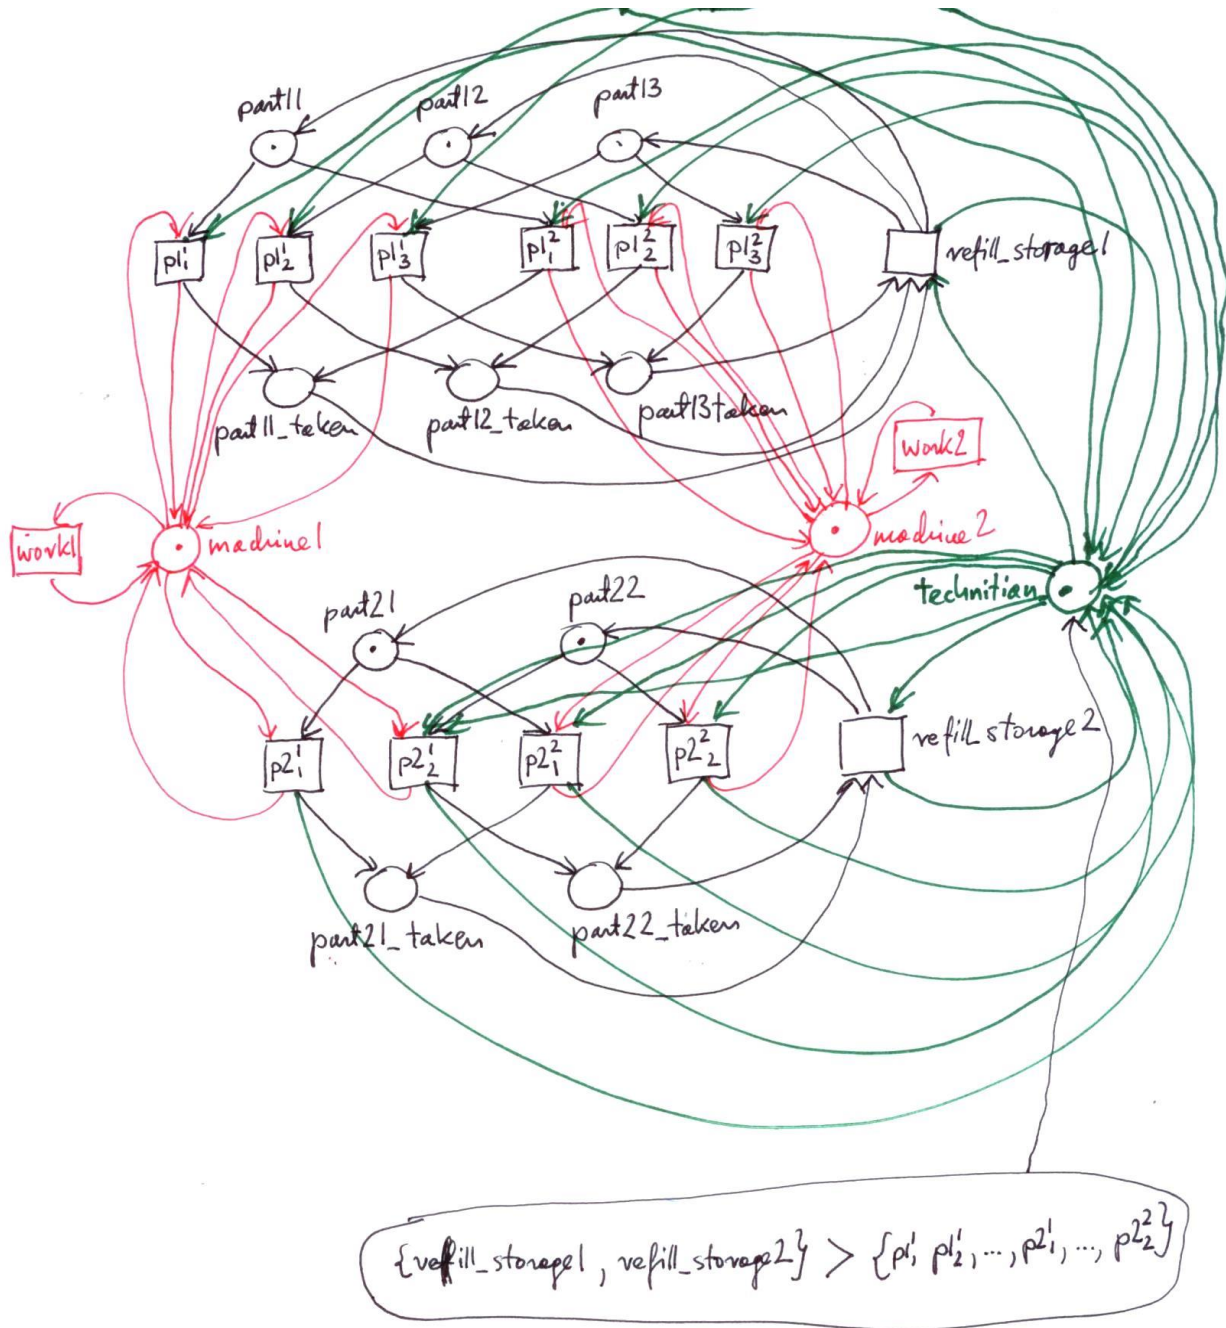 part11
part12
part13
p1₁¹
p1₂¹
p1₃¹
p1₁²
p1₂²
p1₃²
refill_storage1
part11_taken
part12_taken
part13taken
work2
work1
machine1
machine2
technitian
part21
part22
p2₁¹
p2₂¹
p2₁²
p2₂²
refill_storage2
part21_taken
part22_taken
{refill_storage1, refill_storage2} > {p1¹, p1₂¹, ..., p2₁¹, ..., p2₂²}